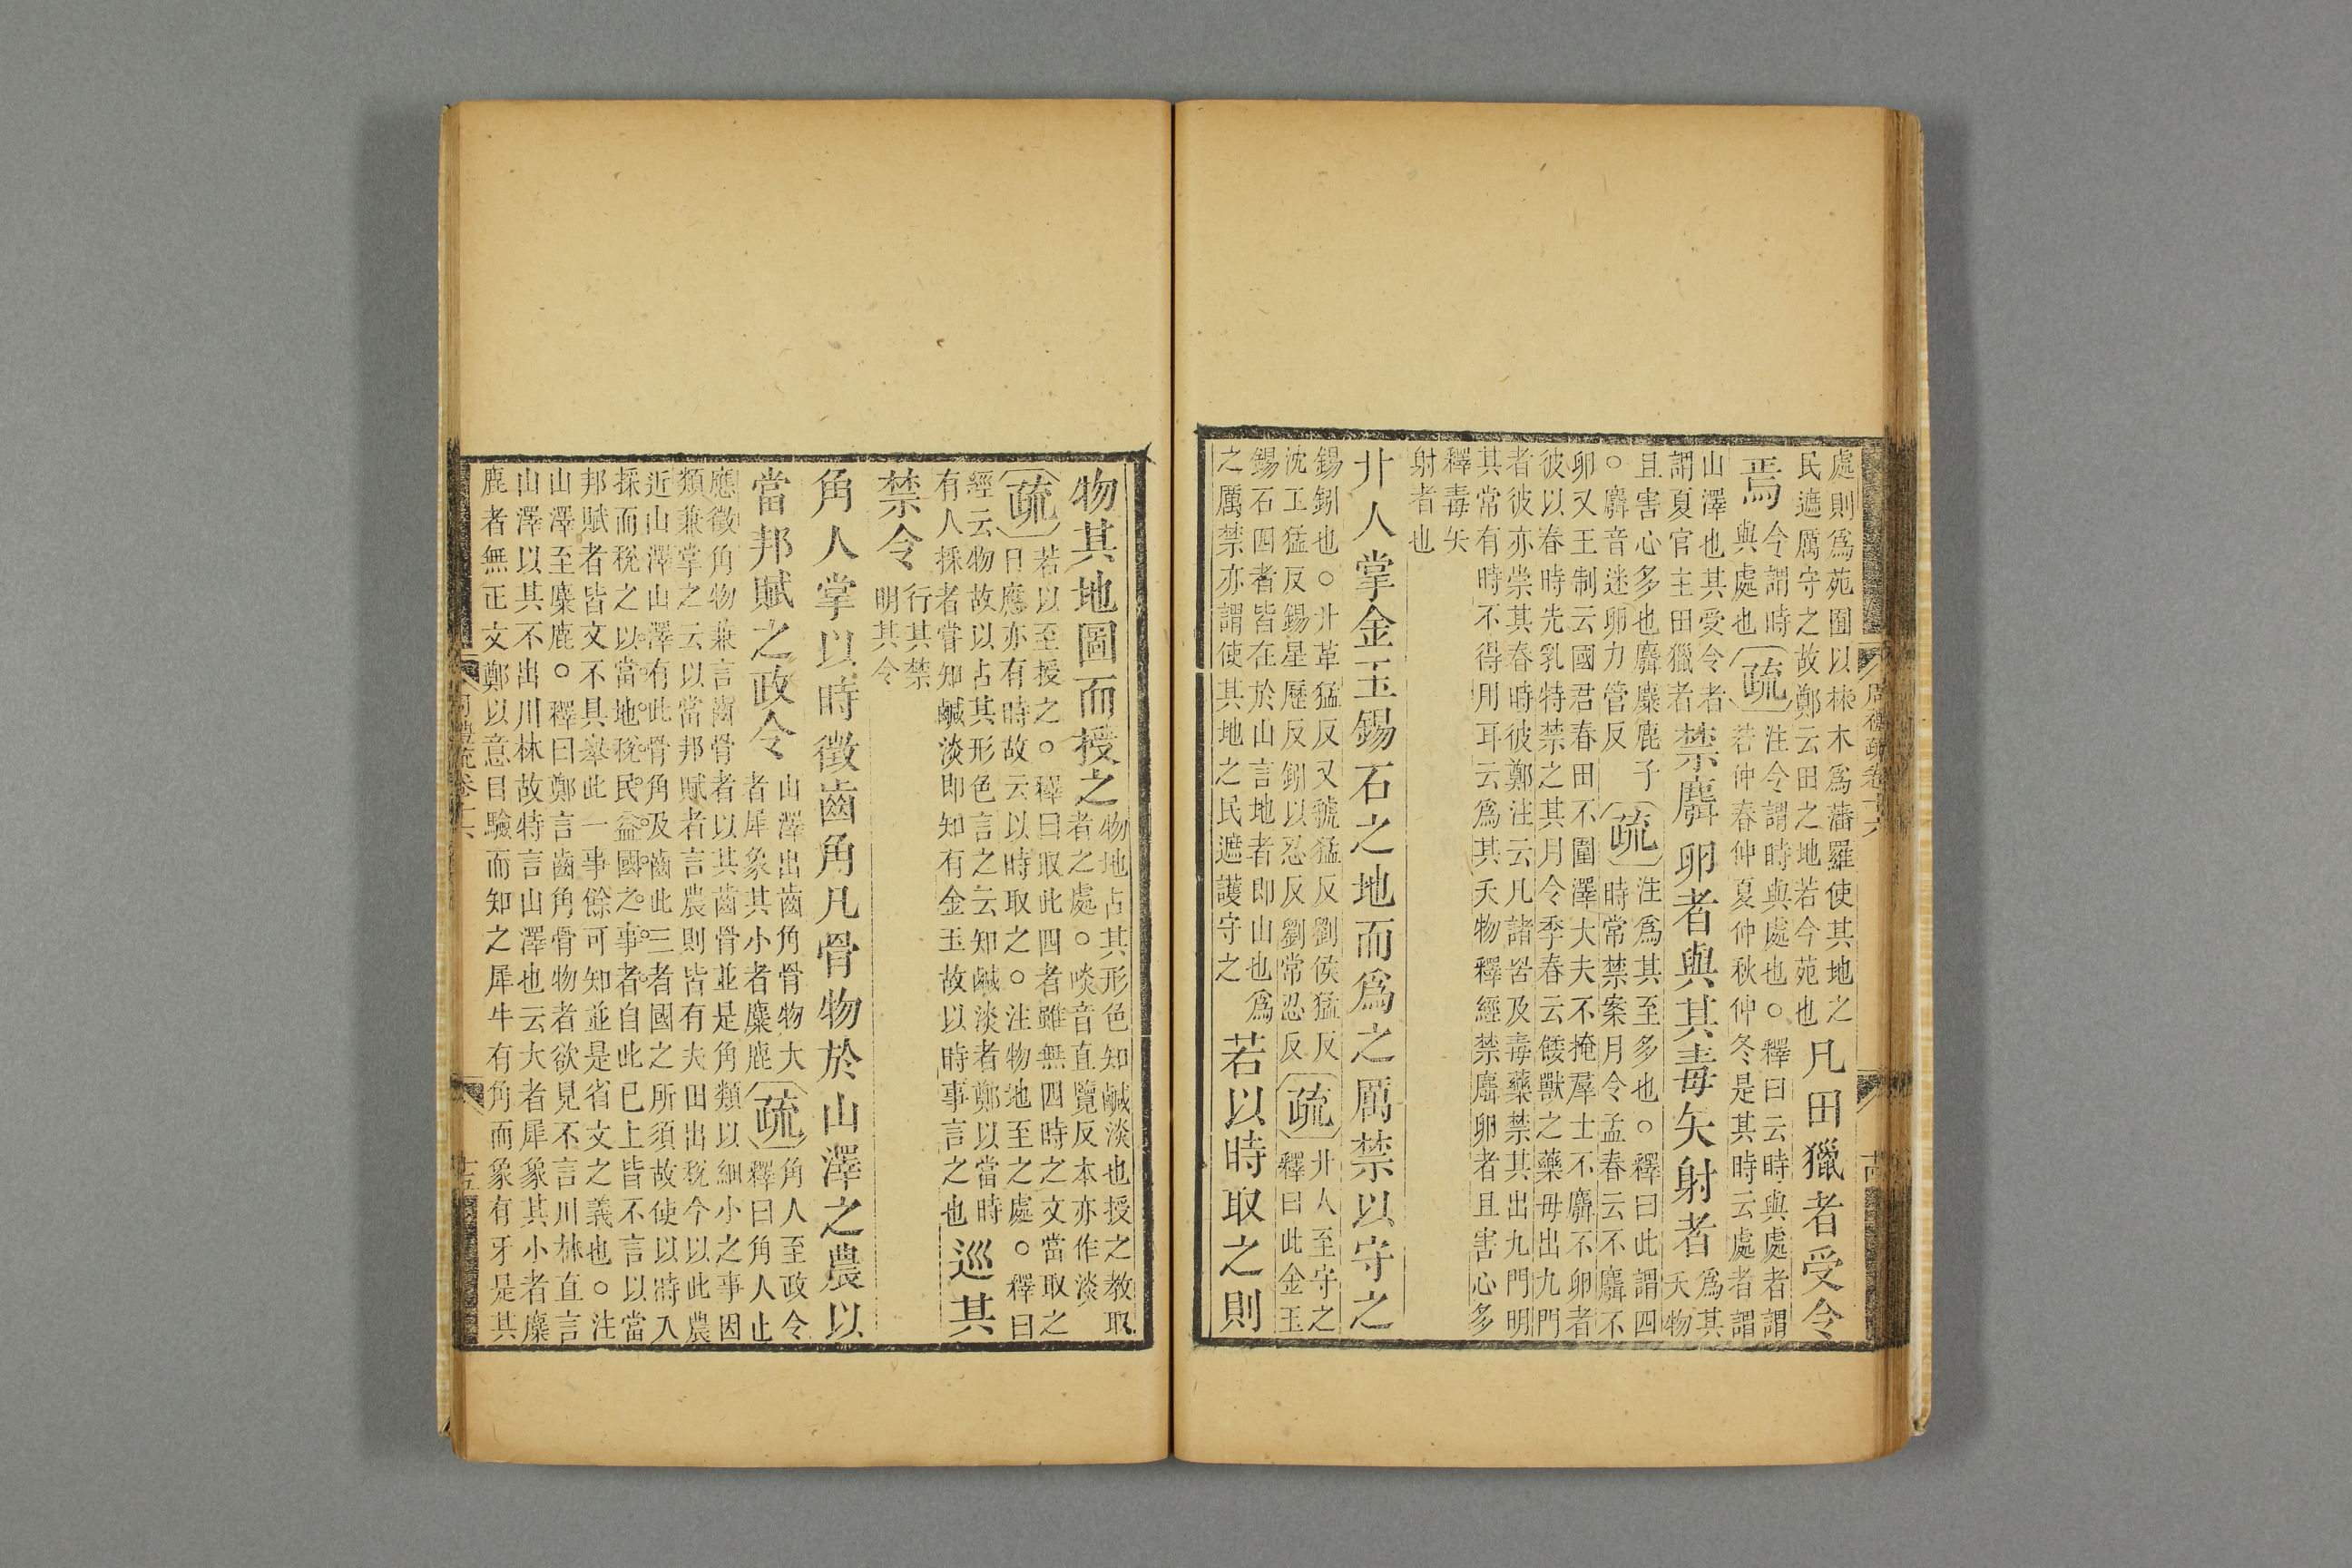 周禮疏卷十六
十四
處則爲苑囿以林木爲藩羅使其地之
民遮厲守之故鄭云田之地若今苑也
凡田獵者受令
焉
今謂時
與處也
疏
注令謂時與處也○釋曰云時與處者謂
若仲春仲夏仲秋仲冬是其時云處者謂
山澤也其受令者
謂夏官主田獵者
禁麛卵者與其毒矢射者
爲其
夭物
且害心多也麛麋鹿子
○麛音迷卵力管反
疏
注爲其至多也○釋曰此謂四
時常禁案月令孟春云不麛不
卵又王制云國君春田不圍澤大夫不掩羣士不麛不卵者
彼以春時先乳特禁之其月令季春云餧獸之藥毋出九門
者彼亦崇其春時彼鄭注云凡諸罟及毒藥禁其出九門明
其常有時不得用耳云爲其夭物釋經禁麛卵者且害心多
釋毒矢
射者也
廾人掌金玉錫石之地而爲之厲禁以守之
錫鈏也○廾革猛反又虢猛反劉侯猛反
沈工猛反錫星歷反鈏以忍反劉常忍反
疏
廾人至守之
釋曰此金玉
錫石四者皆在於山言地者即山也爲
之厲禁亦謂使其地之民遮護守之
若以時取之則
物其地圖而授之
物地占其形色知鹹淡也授之教取
者之處○啖音直覽反本亦作淡
疏
若以至授之○釋曰取此四者雖無四時之文當取之
日應亦有時故云以時取之○注物地至之處○釋曰
經云物故以占其形色言之云知鹹淡者鄭以當時
有人採者嘗知鹹淡即知有金玉故以時事言之也
巡其
禁令
行其禁
明其令
角人掌以時徵齒角凡骨物於山澤之農以
當邦賦之政令
山澤出齒角骨物大
者犀象其小者麋鹿
疏
角人至政令
釋曰角人止
應徵角物兼言齒骨者以其齒骨並是角類以細小之事因
類兼掌之云以當邦賦者言農則皆有夫田出稅今以此農
近山澤山澤有此骨角及齒此三者國之所須故使以時入
採而稅之以當地稅民益國之事者自此已上皆不言以當
邦賦者皆文不具舉此一事餘可知並是省文之義也○注
山澤至麋鹿○釋曰鄭言齒角骨物者欲見不言川林直言
山澤以其不出川林故特言山澤也云大者犀象其小者麋
鹿者無正文鄭以意目驗而知之犀牛有角而象有牙是其
周禮疏卷十六
十五